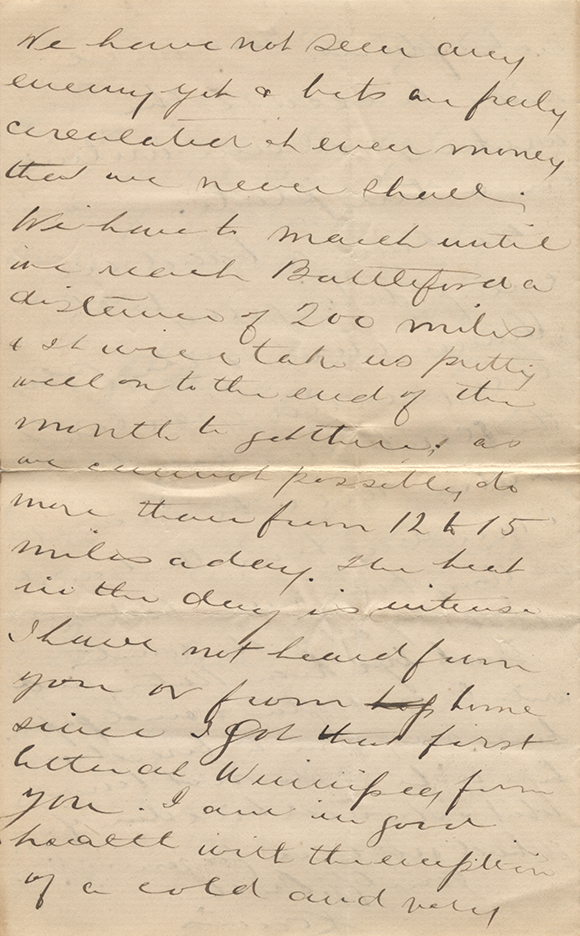 We have not seen any
enemy yet & bets are freely
circulated at even money
that we never shall.
We have to march until
we reach Battleford a
distance of 200 miles
& it will take us pretty
well on to the end of the
month to get there, as
we cannot possibly do
more than from 12 to 15
miles a day. The heat
in the day is intense
I have not heard from
you or from home
since I got that first
letter at Winnipeg from
you. I am in good
health with the exception
of a cold and very